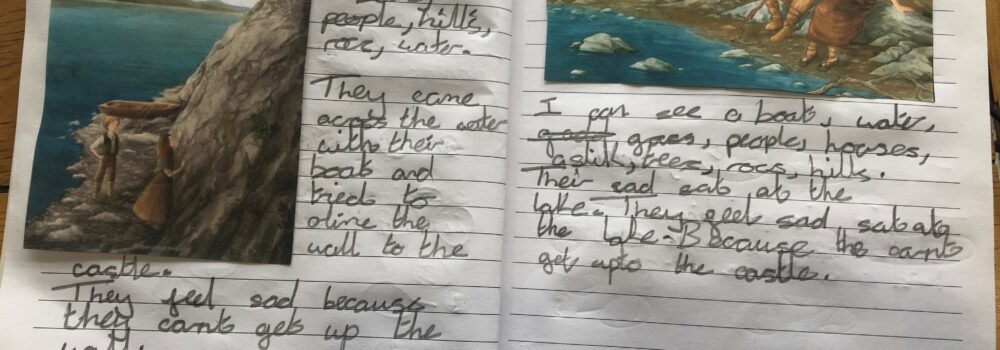 people, hills,
rocs, water.
They came
across the water
with their
boat and
tried to
clime the
wall to the
castle.
They feel sad because
they cant get up the
I can see a boat, water,
grass, people, houses,
a stik, trees, rocs, hills.
Their sad sat at the
lake. They feel sad sat at
the lake. Because the cant
get upto the castle.